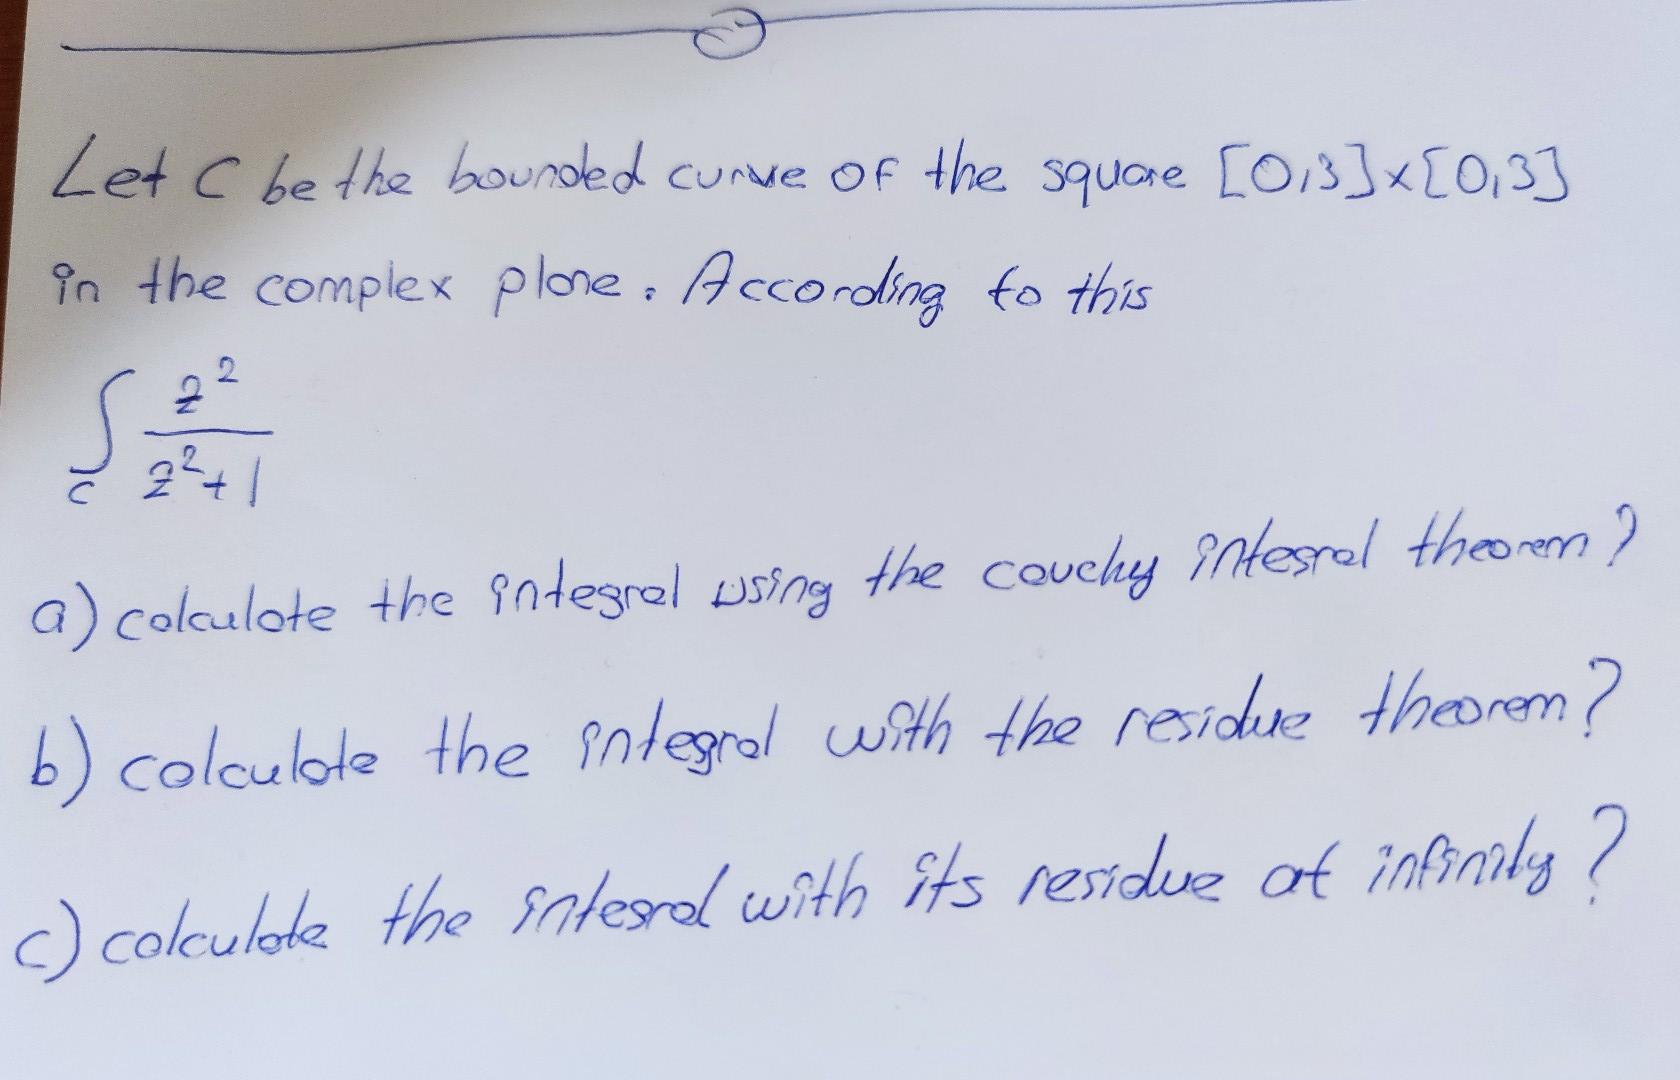 Let C be the bounded curve of the square [0,3]x[0,3]
in the complex plane. According to this
∫_C z²/(z²+1)
a) calculate the integral using the cauchy integral theorem?
b) calculate the integral with the residue theorem?
c) calculate the integral with its residue at infinity?